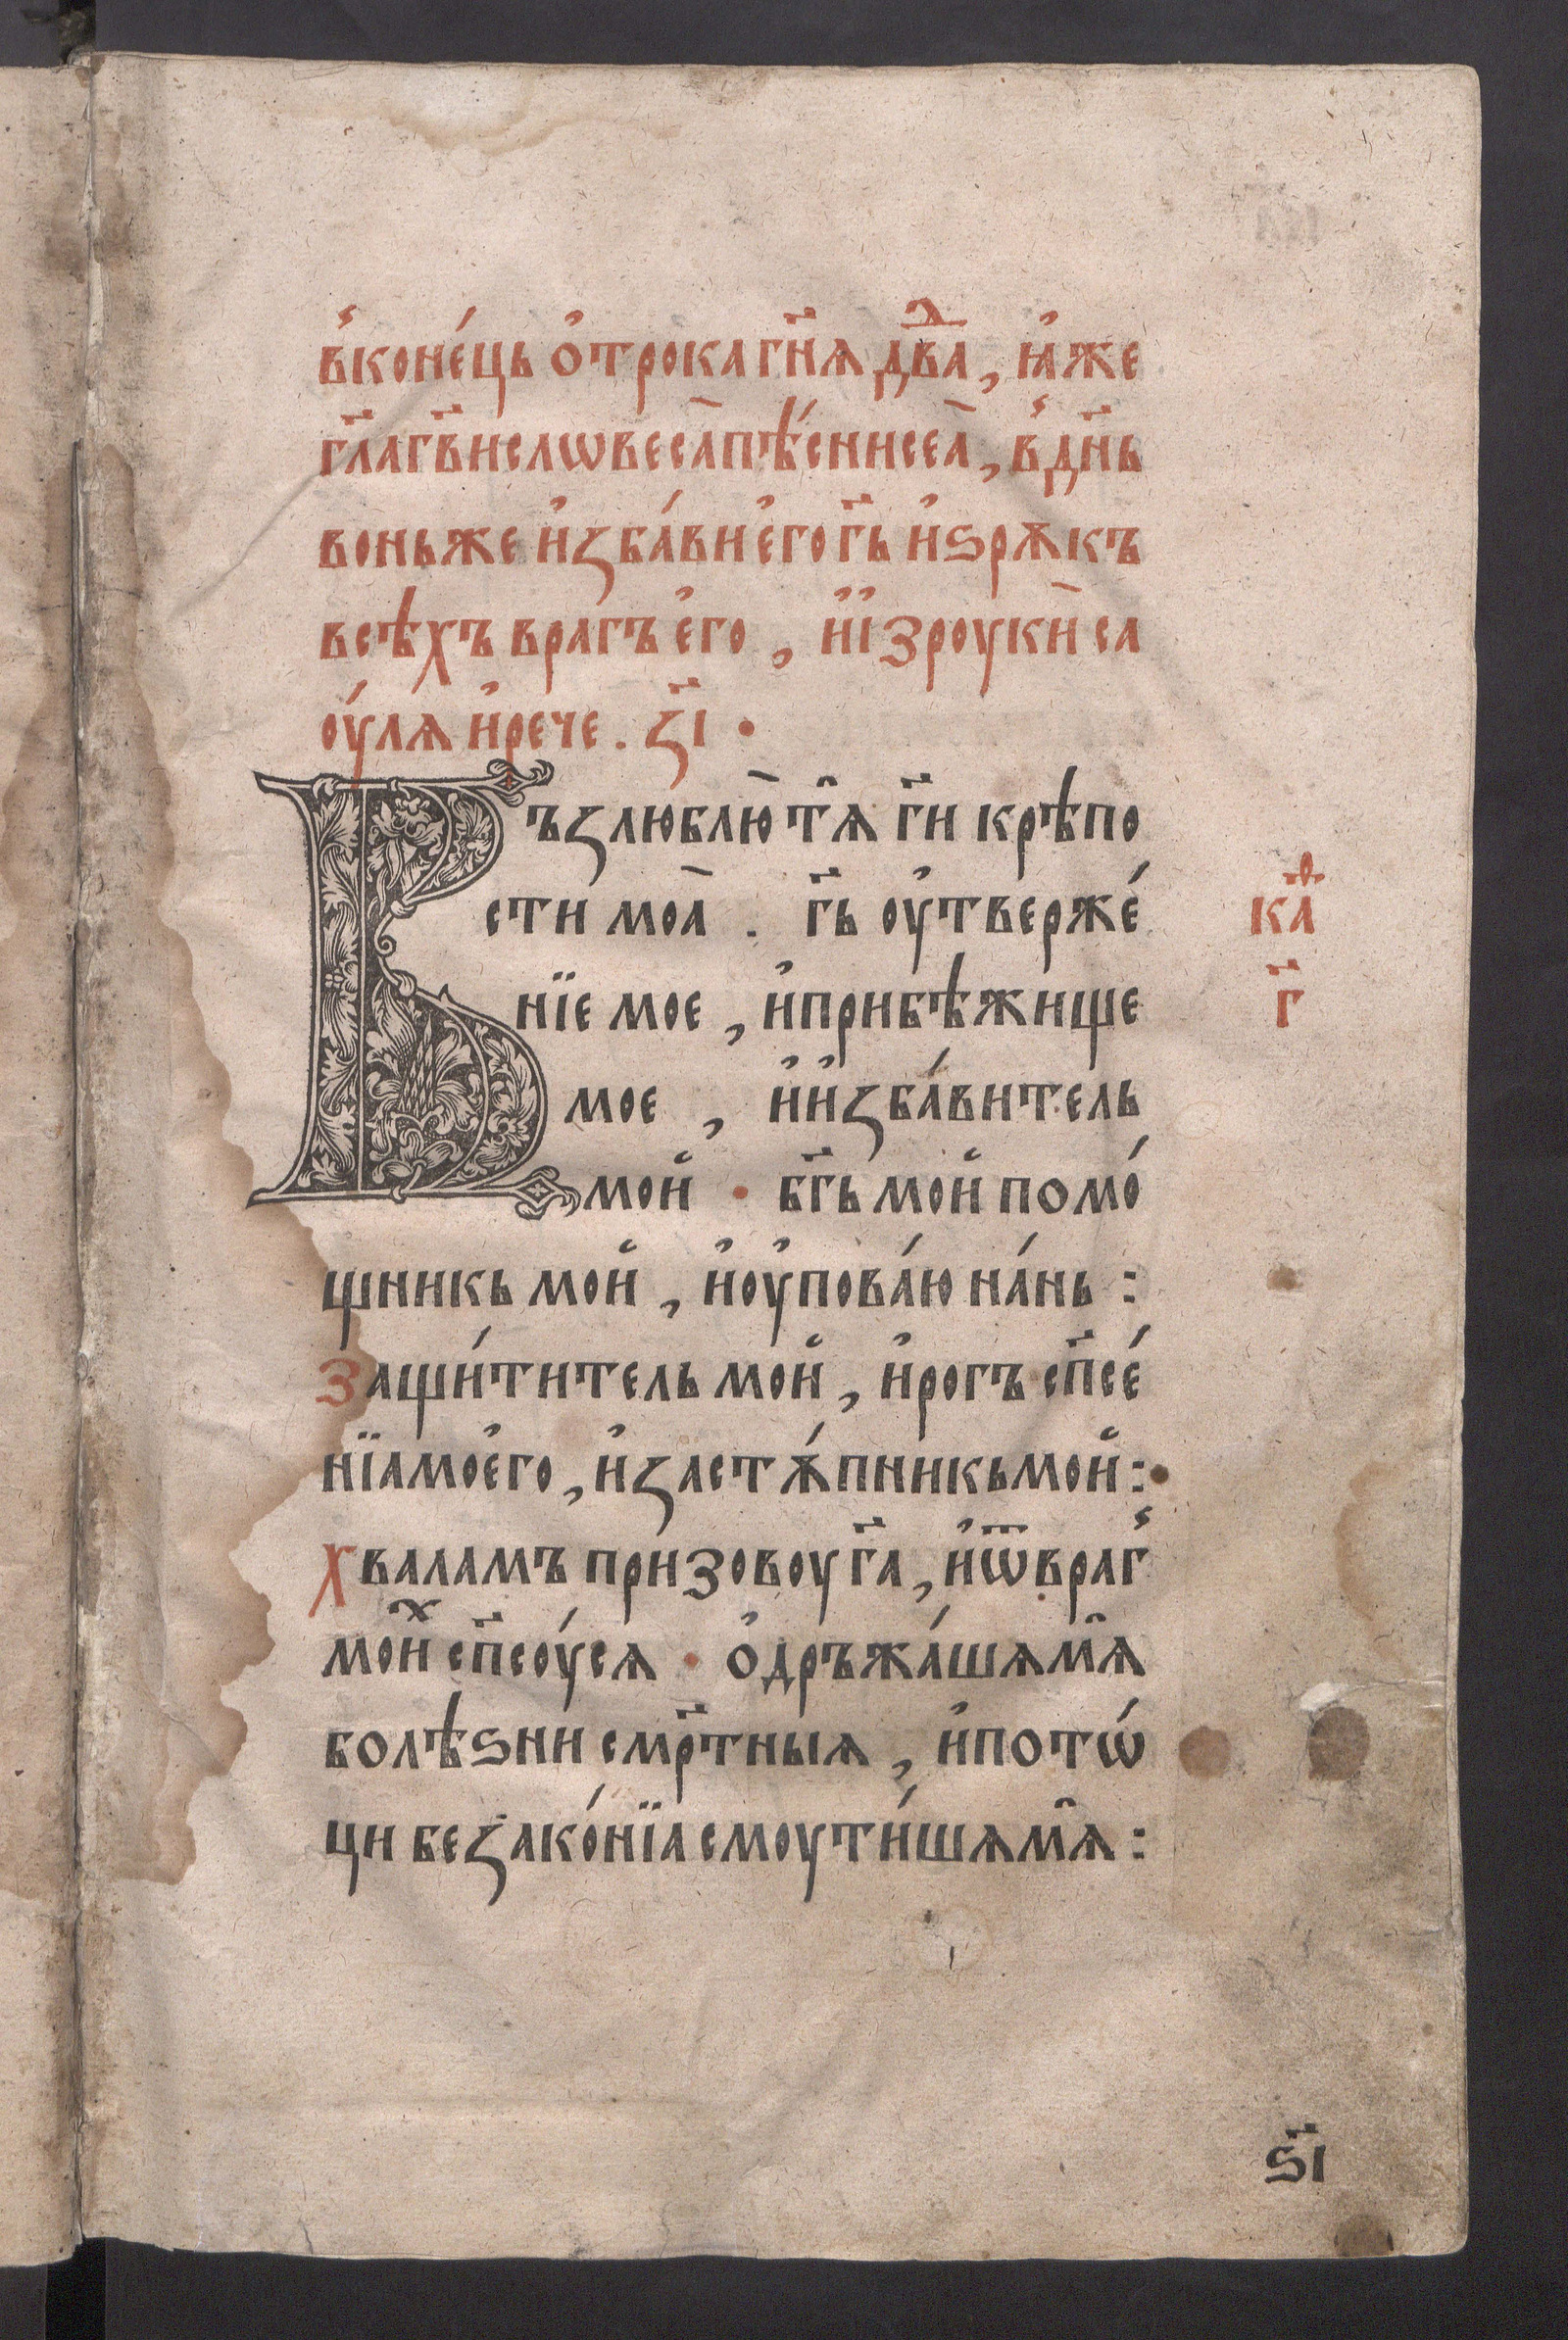 в̾коне́ць ѻ҆трока гн҃ѧ дв҃аⷣ, ꙗ҆же
гл҃а гв҃и слѡвеса̀ пѣ́сни сеа̀, в̾ дн҃ь
воньже и҆ꙁба́ви е҆го гь҃ и҆ѕ рѫкъ
всѣхъ врагъ е҆го, и҆ і҆з роукѝ са
оу́лѧ и҆ рече. ꙁ҃і ·
Въꙁлюблю̀ тѧ̑ гн҃и крѣпо
сти моа̀. гь҃ оу҆твержє́
нїе мое, и҆ прибѣжище
мое, и҆ и҆ꙁба́витель
мои҆ · бг҃ь мои҆ помо́
щникь мои҆, и҆ оу҆пова́ю на́нь :
Защи́титель мои҆, и҆ рогъ сп҃се́
нїа моє҆го, и҆ ꙁастѫ́пникь мои҆ :
Хваламъ призовоу г҃а, и҆ ѿ враг̾
моиⷯ сп҃соу́сѧ · ѻ҆дръжа́шѧ мѧ̑
болѣѕни смр҃тныѧ, и҆ потѡ́
ци беꙁако́нїа смоути́шѧ мѧ̑ :
каⷴ
г҃
ѕ҃і